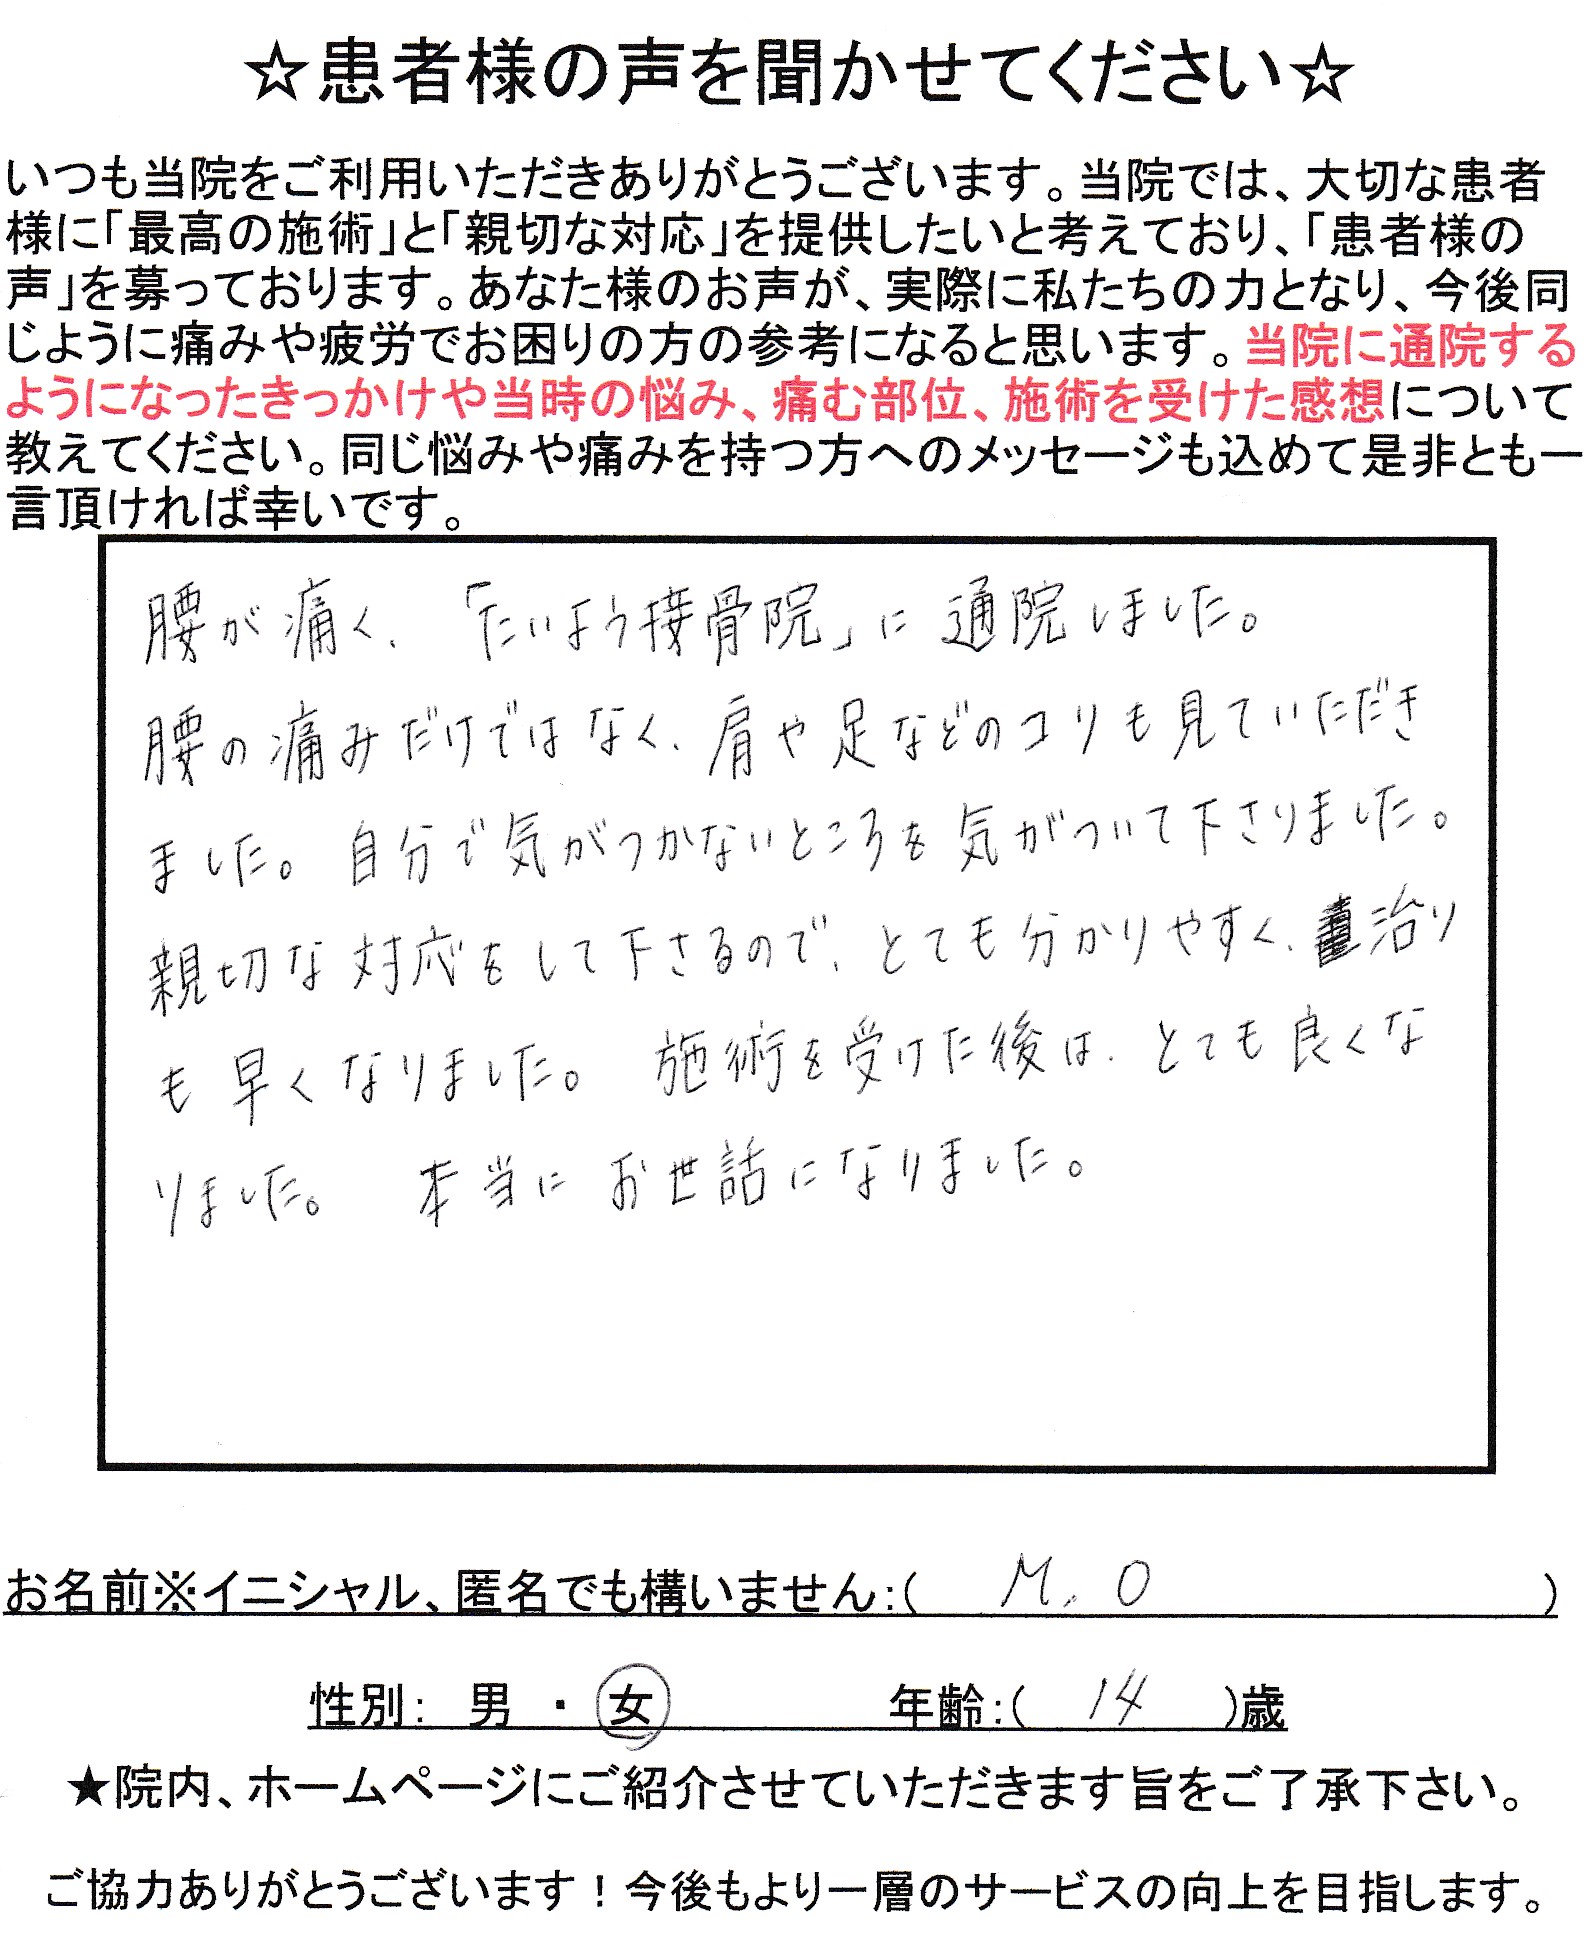 ☆患者様の声を聞かせてください☆
いつも当院をご利用いただきありがとうございます。当院では、大切な患者
様に「最高の施術」と「親切な対応」を提供したいと考えており、「患者様の
声」を募っております。あなた様のお声が、実際に私たちの力となり、今後同
じように痛みや疲労でお困りの方の参考になると思います。当院に通院する
ようになったきっかけや当時の悩み、痛む部位、施術を受けた感想について
教えてください。同じ悩みや痛みを持つ方へのメッセージも込めて是非とも一
言頂ければ幸いです。
腰が痛く、「たいよう接骨院」に通院しました。
腰の痛みだけではなく、肩や足などのコリも見ていただき
ました。自分で気がつかないところを気がついて下さりました。
親切な対応をして下さるので、とても分かりやすく、治り
も早くなりました。 施術を受けた後は、とても良くな
りました。 本当にお世話になりました。
お名前※イニシャル、匿名でも構いません:( M.O )
性別: 男 ・ 女 年齢:( 14 )歳
★院内、ホームページにご紹介させていただきます旨をご了承下さい。
ご協力ありがとうございます！今後もより一層のサービスの向上を目指します。